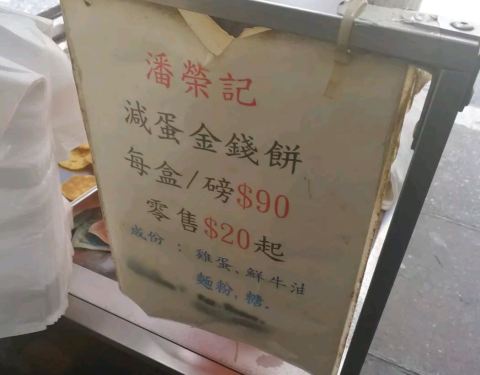 潘榮記
減蛋金錢餅
每盒/磅$90
零售$20起
成份：雞蛋、鮮牛油
麵粉，糖.